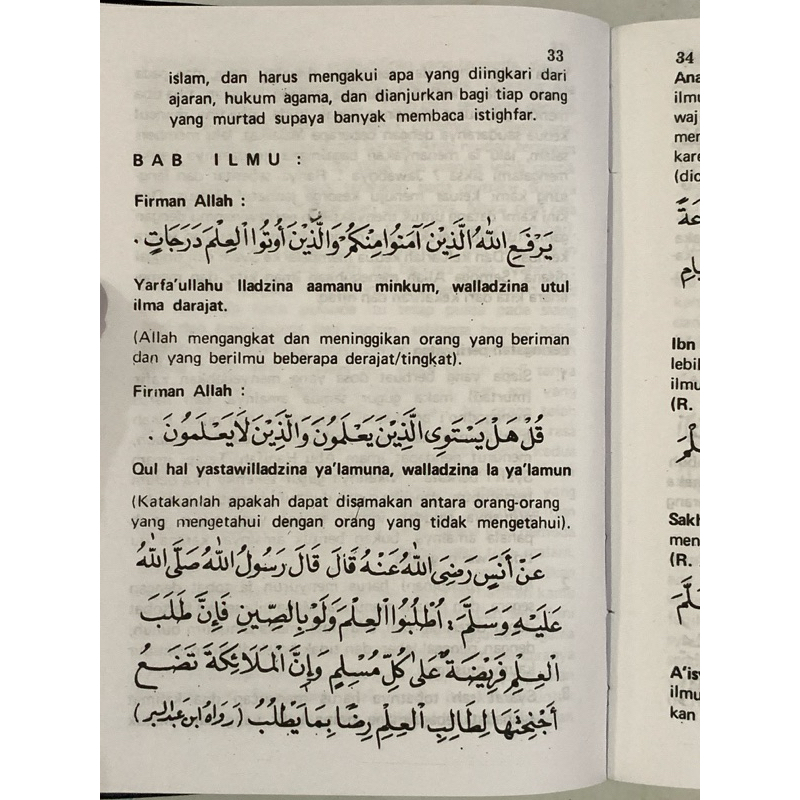 33
islam, dan harus mengakui apa yang diingkari dari
ajaran, hukum agama, dan dianjurkan bagi tiap orang
yang murtad supaya banyak membaca istighfar.
BAB ILMU :
Firman Allah :
يَرْفَعِ اللهُ الَّذِيْنَ آمَنُوا مِنْكُمْ وَالَّذِيْنَ أُوتُوا الْعِلْمَ دَرَجَاتٍ .
Yarfa'ullahu lladzina aamanu minkum, walladzina utul
ilma darajat.
(Allah mengangkat dan meninggikan orang yang beriman
dan yang berilmu beberapa derajat/tingkat).
Firman Allah :
قُلْ هَلْ يَسْتَوِى الَّذِيْنَ يَعْلَمُونَ وَالَّذِيْنَ لَا يَعْلَمُونَ .
Qul hal yastawilladzina ya'lamuna, walladzina la ya'lamun
(Katakanlah apakah dapat disamakan antara orang-orang
yang mengetahui dengan orang yang tidak mengetahui).
عَنْ أَنَسٍ رَضِىَ اللهُ عَنْهُ قَالَ قَالَ رَسُولُ اللهُ صَلَّى اللهُ
عَلَيْهِ وَسَلَّمَ : اُطْلُبُوا الْعِلْمَ وَلَوْ بِالصِّينِ فَإِنَّ طَلَبَ
الْعِلْمِ فَرِيْضَةٌ عَلَى كُلِّ مُسْلِمٍ وَإِنَّ الْمَلَائِكَةَ تَضَعُ
أَجْنِحَتَهَا لِطَالِبِ الْعِلْمِ رِضًا بِمَا يَطْلُبُ (رَوَاهُ ابن عبد البر)
34
Ana
ilmu
waj
mer
kare
(dic
Ibn
lebil
ilmu
(R.
Sakh
men
(R.
A'is
ilmu
kan